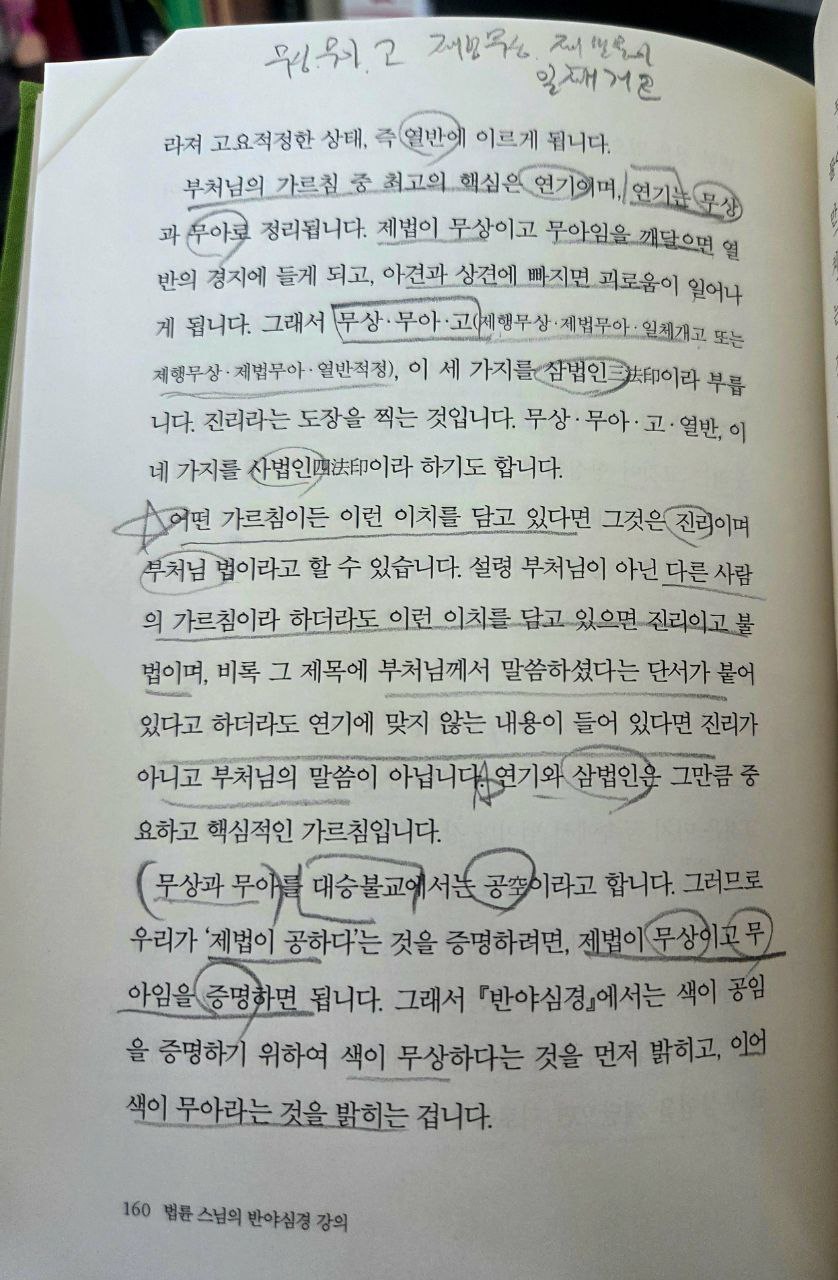 무상·무아·고
라져 고요적정한 상태, 즉 열반에 이르게 됩니다.
부처님의 가르침 중 최고의 핵심은 연기이며, 연기는 무상
과 무아로 정리됩니다. 제법이 무상이고 무아임을 깨달으면 열
반의 경지에 들게 되고, 아견과 상견에 빠지면 괴로움이 일어나
게 됩니다. 그래서 무상·무아·고(제행무상·제법무아·일체개고 또는
제행무상·제법무아·열반적정), 이 세 가지를 삼법인三法印이라 부릅
니다. 진리라는 도장을 찍는 것입니다. 무상·무아·고·열반, 이
네 가지를 사법인四法印이라 하기도 합니다.
어떤 가르침이든 이런 이치를 담고 있다면 그것은 진리이며
부처님 법이라고 할 수 있습니다. 설령 부처님이 아닌 다른 사람
의 가르침이라 하더라도 이런 이치를 담고 있으면 진리이고 불
법이며, 비록 그 제목에 부처님께서 말씀하셨다는 단서가 붙어
있다고 하더라도 연기에 맞지 않는 내용이 들어 있다면 진리가
아니고 부처님의 말씀이 아닙니다. 연기와 삼법인은 그만큼 중
요하고 핵심적인 가르침입니다.
무상과 무아를 대승불교에서는 공空이라고 합니다. 그러므로
우리가 '제법이 공하다'는 것을 증명하려면, 제법이 무상이고 무
아임을 증명하면 됩니다. 그래서 『반야심경』에서는 색이 공임
을 증명하기 위하여 색이 무상하다는 것을 먼저 밝히고, 이어
색이 무아라는 것을 밝히는 겁니다.
160 법륜 스님의 반야심경 강의